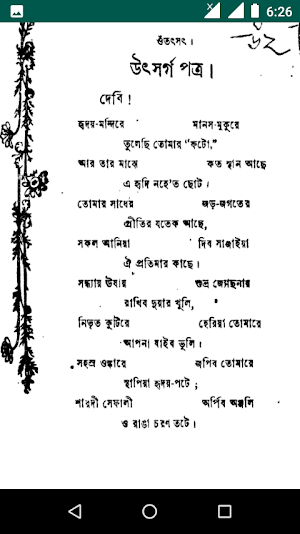 6:26
ওঁতৎসৎ।
উৎসর্গ পত্র।
দেবি!
হৃদয়-মন্দিরে মানস-মুকুরে
তুলেছি তোমার "ফটো,"
আর তার মাঝে কত স্থান আছে
এ হৃদি নহে'ত ছোট।
তোমার সাধের জড়-জগতের
প্রীতির যতেক আছে,
সকল আনিয়া দিব সাজাইয়া
ঐ প্রতিমার কাছে।
সন্ধ্যায় ঊষায় শুভ্র জ্যোছনায়
রাখিব দুয়ার খুলি,
নিভৃত কুটীরে হেরিয়া তোমারে
আপনা যাইব ভুলি।
সহস্র ওঙ্কারে জপিব তোমারে
স্থাপিয়া হৃদয়-পটে;
শারদী সেফালী অর্পিব অঞ্জলি
ও রাঙা চরণ তটে।